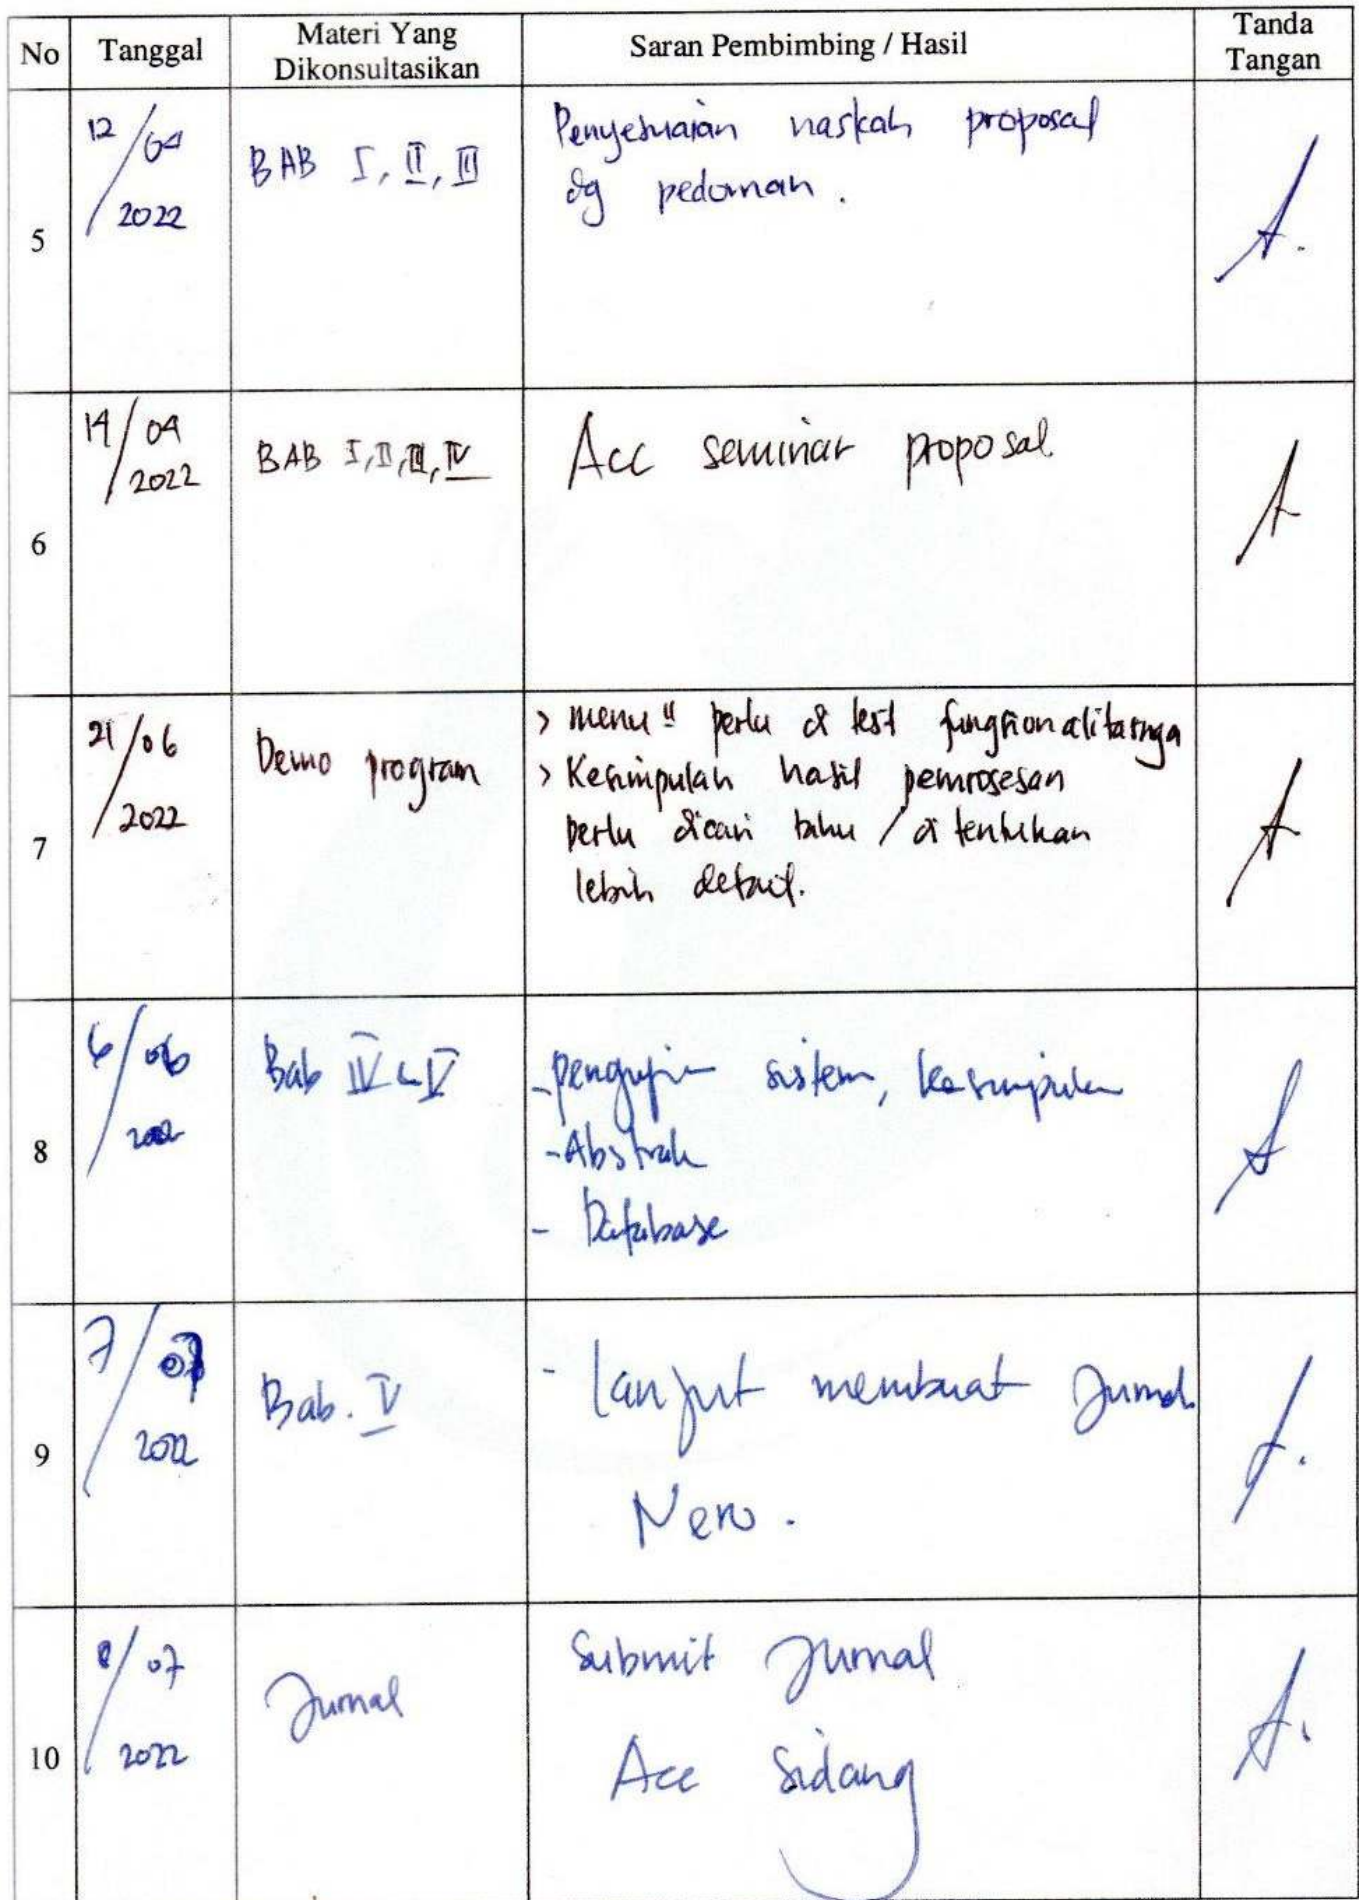 No Tanggal Materi Yang Dikonsultasikan Saran Pembimbing / Hasil Tanda Tangan
5
12/04
2022
BAB I, II, III
Penyesuaian naskah proposal
dg pedoman.
6
14/04
2022
BAB I, II, III, IV
Acc seminar proposal
7
21/06
2022
Demo program
> menu" perlu di test fungsionalitasnya
> Kesimpulan hasil pemrosesan
perlu dicari tahu / di tentukan
lebih detail.
8
6/06
Bab IV & V
- pengujian sistem, kesimpulan
- Abstrak
- Database
9
7/07
2022
Bab. V
- lanjut membuat Jurnal
Nero.
10
8/07
2022
Jurnal
Submit Jurnal
Acc Sidang